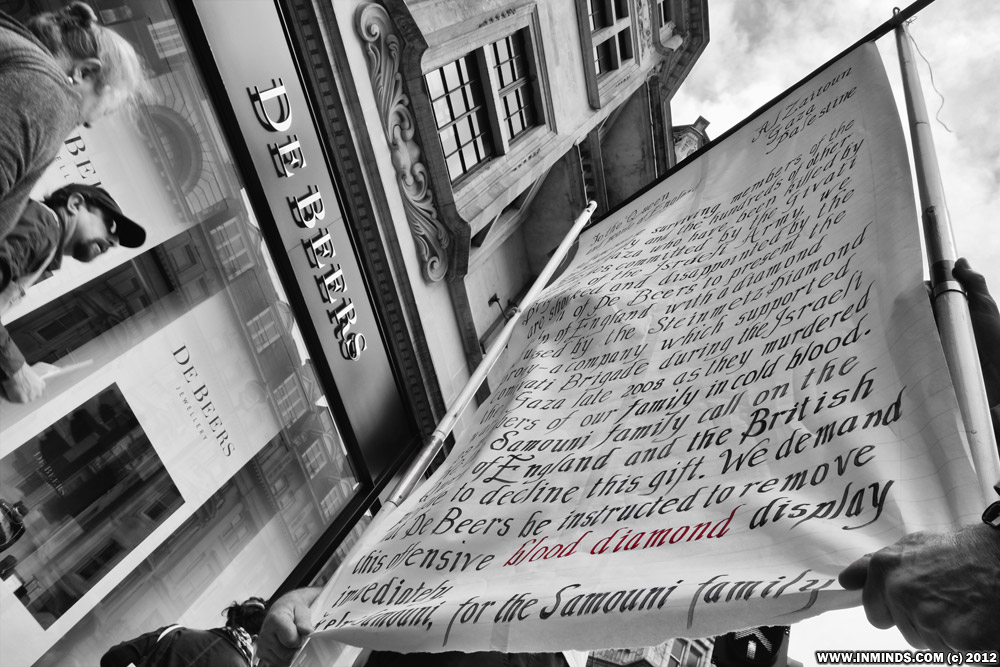 DE BEERS
DE BEERS
JEWELLERY
DE BEERS
Al Zaitoun
Gaza
Palestine
To the Queen
surviving members of the
family and the hundreds of other
Gaza who have been killed by
committed by the Givati
of the Israeli Army, we
are shocked and disappointed by the
of De Beers to present the
of England with a diamond
used by the Steinmetz Diamond
a company which supported
Givati Brigade during the Israeli
Gaza late 2008 as they murdered
of our family in cold blood.
Samouni family call on the
of England and the British
to decline this gift. We demand
De Beers be instructed to remove
this offensive blood diamond display
immediately
Samouni, for the Samouni family
WWW.INMINDS.COM (c) 2012